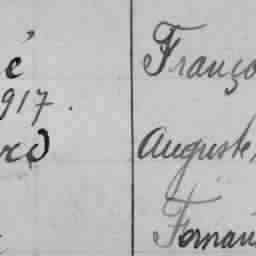 é Franço
917.
rd Auguste,
Fernan